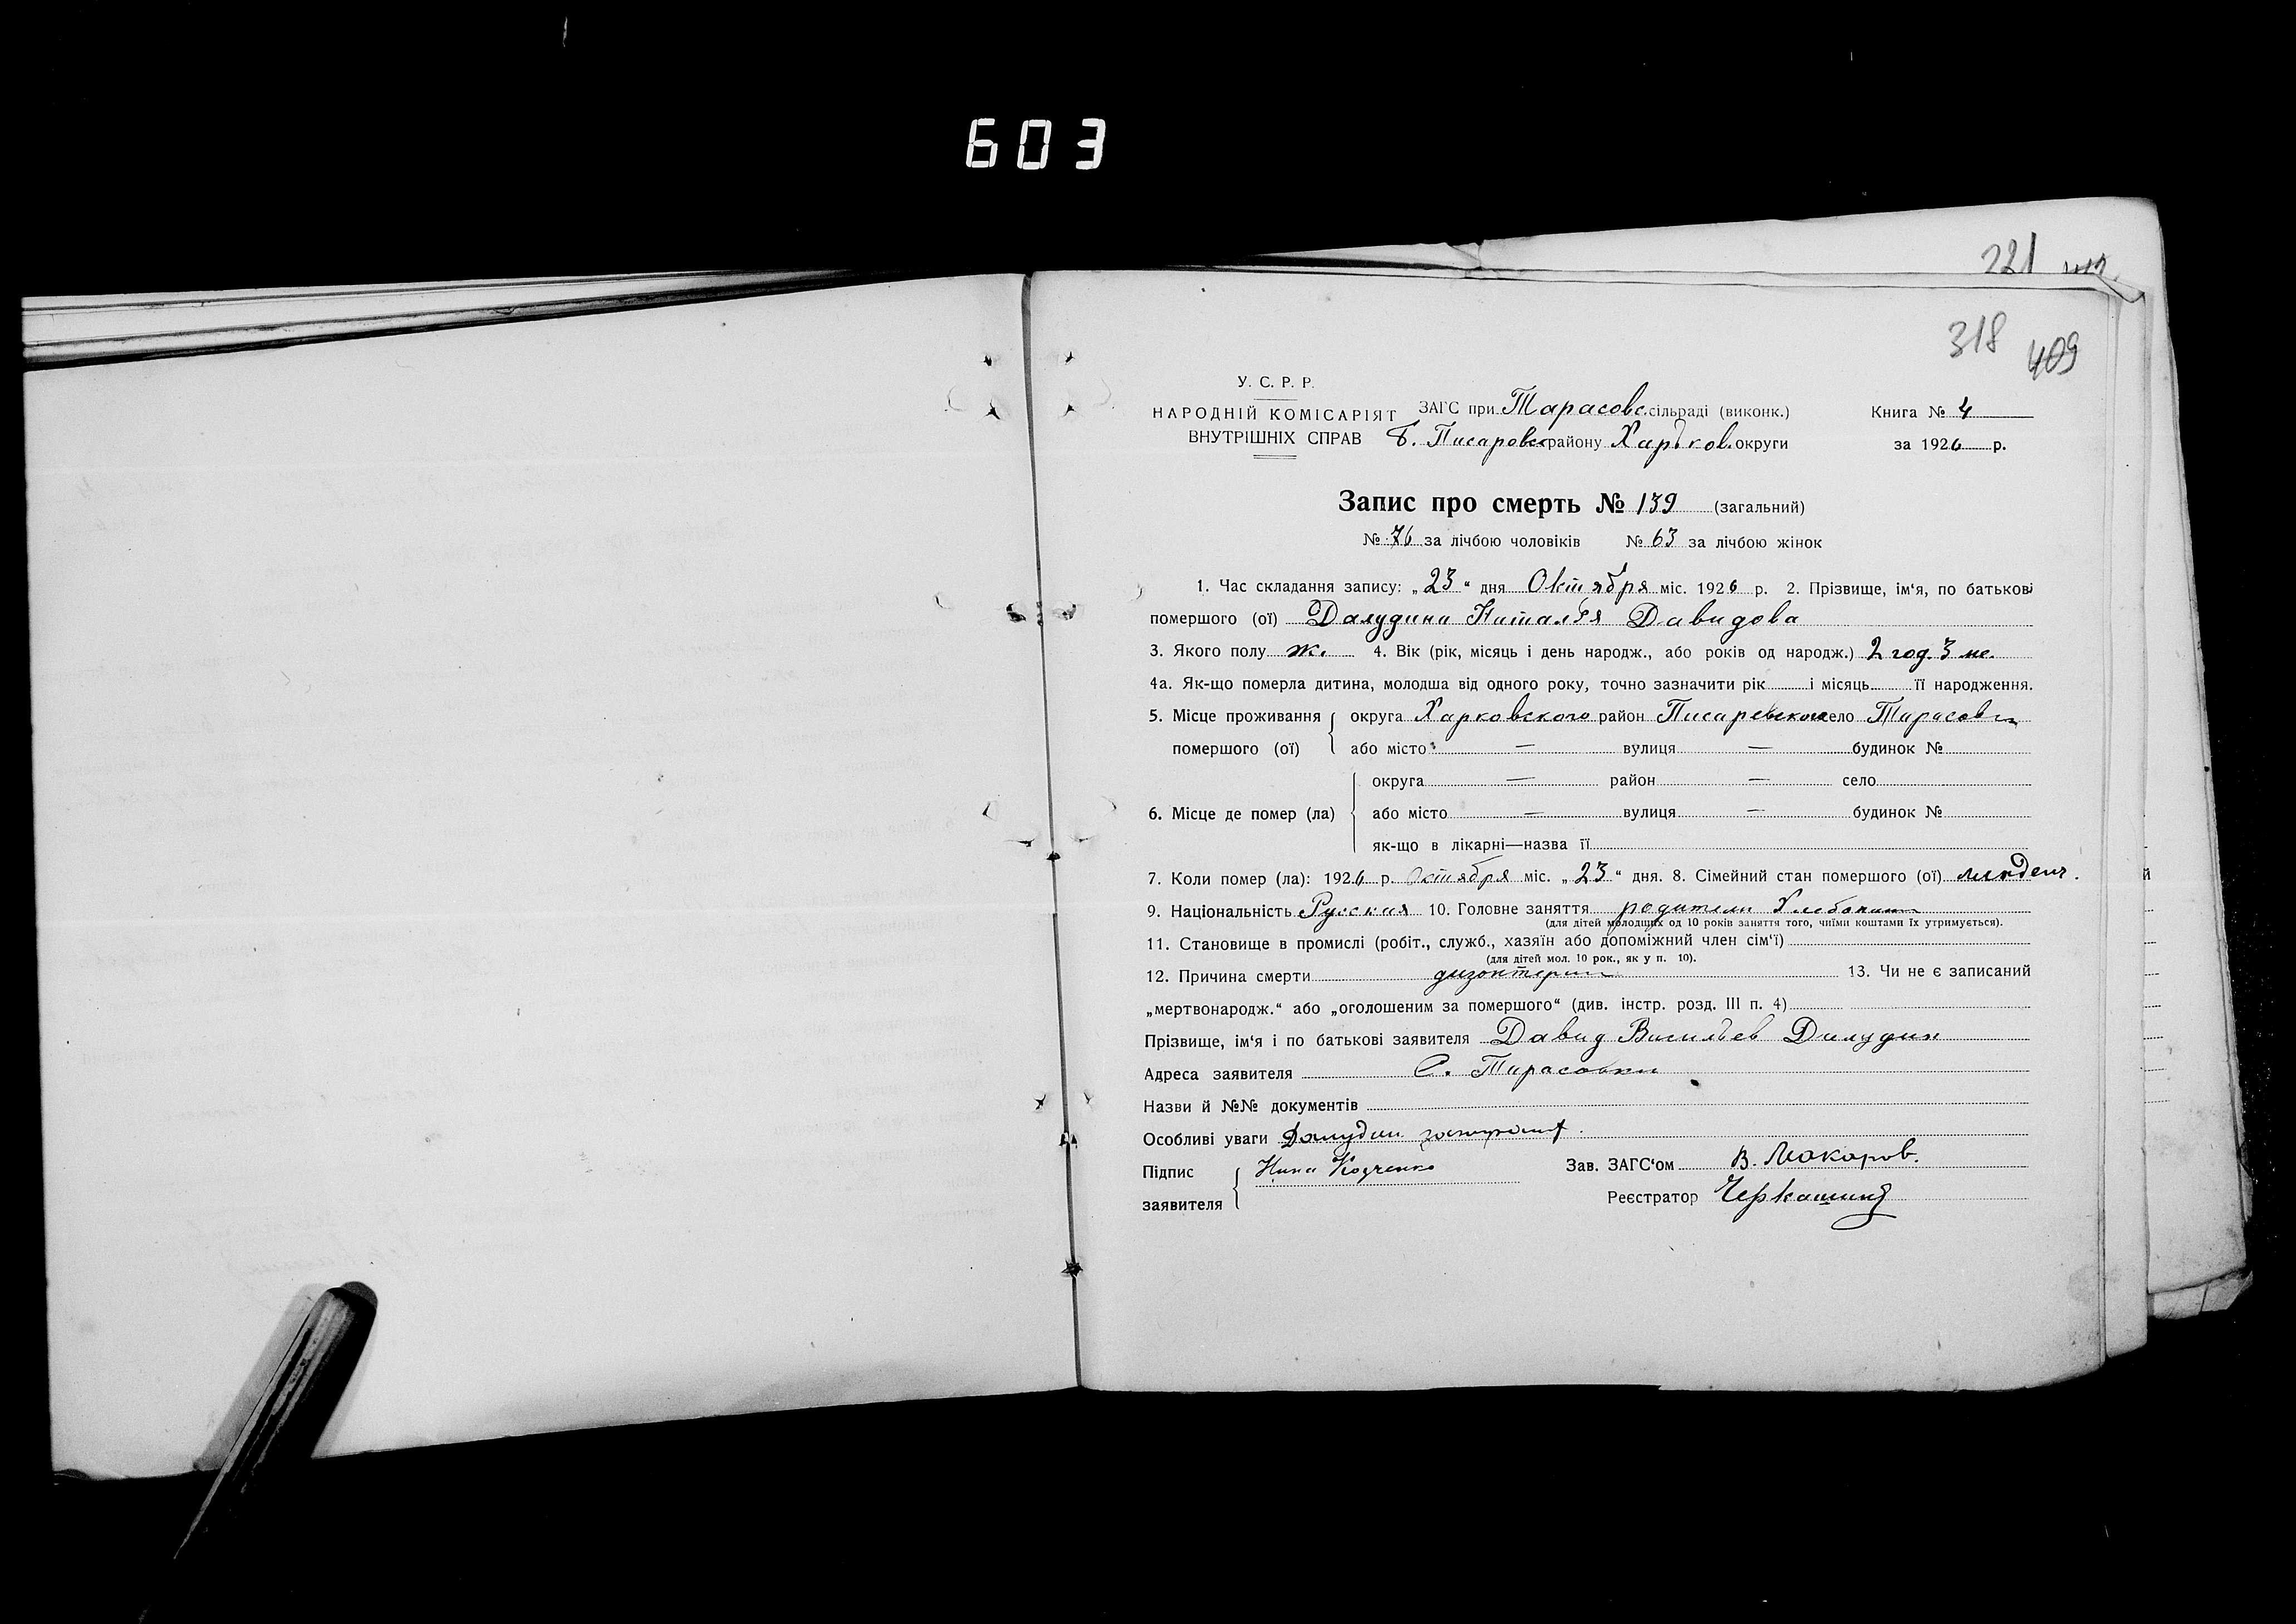 603
221
318 409
У. С. Р. Р.
НАРОДНІЙ КОМІСАРІЯТ
ВНУТРІШНІХ СПРАВ
ЗАГС при Тарасовс. сільраді (виконк.)
Б. Писаровск району Харьков. округи
Книга № 4
за 1926 р.
Запис про смерть № 139 (загальний)
№ 76 за лічбою чоловіків № 63 за лічбою жінок
1. Час складання запису: „23“ дня Октября міс. 1926 р. 2. Прізвище, ім‘я, по батькові
помершого (ої) Далудина Наталья Давидова
3. Якого полу ж. 4. Вік (рік, місяць і день народж., або років од народж.) 2 год. 3 ме.
4а. Як-що померла дитина, молодша від одного року, точно зазначити рік і місяць її народження.
5. Місце проживання округа Харковского район Писаревского село Тарасовка
помершого (ої) або місто — вулиця — будинок №
округа — район — село
6. Місце де помер (ла) або місто — вулиця — будинок №
як-що в лікарні—назва її
7. Коли помер (ла): 1926 р. Октября міс. „23“ дня. 8. Сімейний стан помершого (ої) младенч.
9. Національність Русская 10. Головне заняття родители
(для дітей молодших од 10 років заняття того, чиїми коштами їх утримується).
11. Становище в промислі (робіт., служб., хазяїн або допоміжний член сім‘ї)
(для дітей мол. 10 рок., як у п. 10).
12. Причина смерти дизонтерии 13. Чи не є записаний
„мертвонародж.“ або „оголошеним за помершого“ (див. інстр. розд. III п. 4)
Прізвище, ім‘я і по батькові заявителя Давид Васильев Далудин
Адреса заявителя С. Тарасовки
Назви й №№ документів
Особливі уваги Далудин
Підпис
заявителя
Нина
Зав. ЗАГС‘ом В. Макаров.
Реєстратор Черкашин